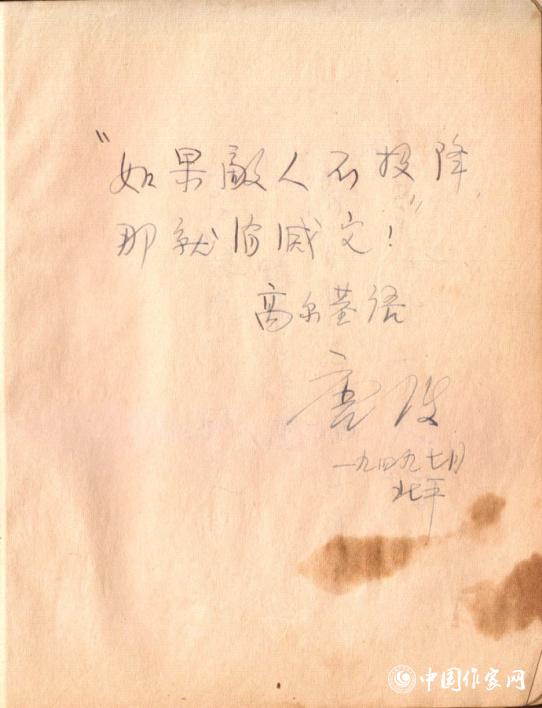 “如果敵人不投降
那就消滅它！”
高尔基语
唐弢
一九四九七月
北平
中国作家网